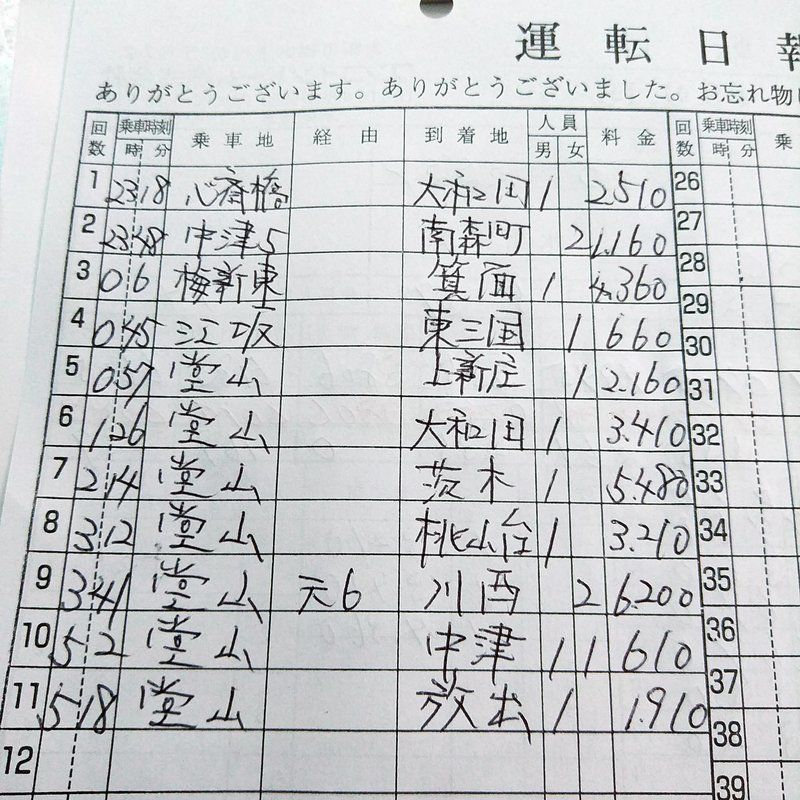 運転日報
ありがとうございます。ありがとうございました。お忘れ物
回数 乗車時刻 時 分 乗車地 経由 到着地 人員 男 女 料金 回数 乗車時刻 時 分 乗
1 23 18 心斎橋 大和田 1 2.510 26
2 23 48 中津5 南森町 2 1.160 27
3 0 6 梅新東 箕面 1 4.360 28
4 0 45 江坂 東三国 1 660 29
5 0 57 堂山 上新庄 1 2.160 30
6 1 26 堂山 大和田 1 3.410 31
7 2 14 堂山 茨木 1 5.480 32
8 3 12 堂山 桃山台 1 3.210 33
9 3 41 堂山 天6 川西 2 6.200 34
10 5 2 堂山 中津 1 1 610 35
11 5 18 堂山 放出 1 1.910 36
12 37
38
39